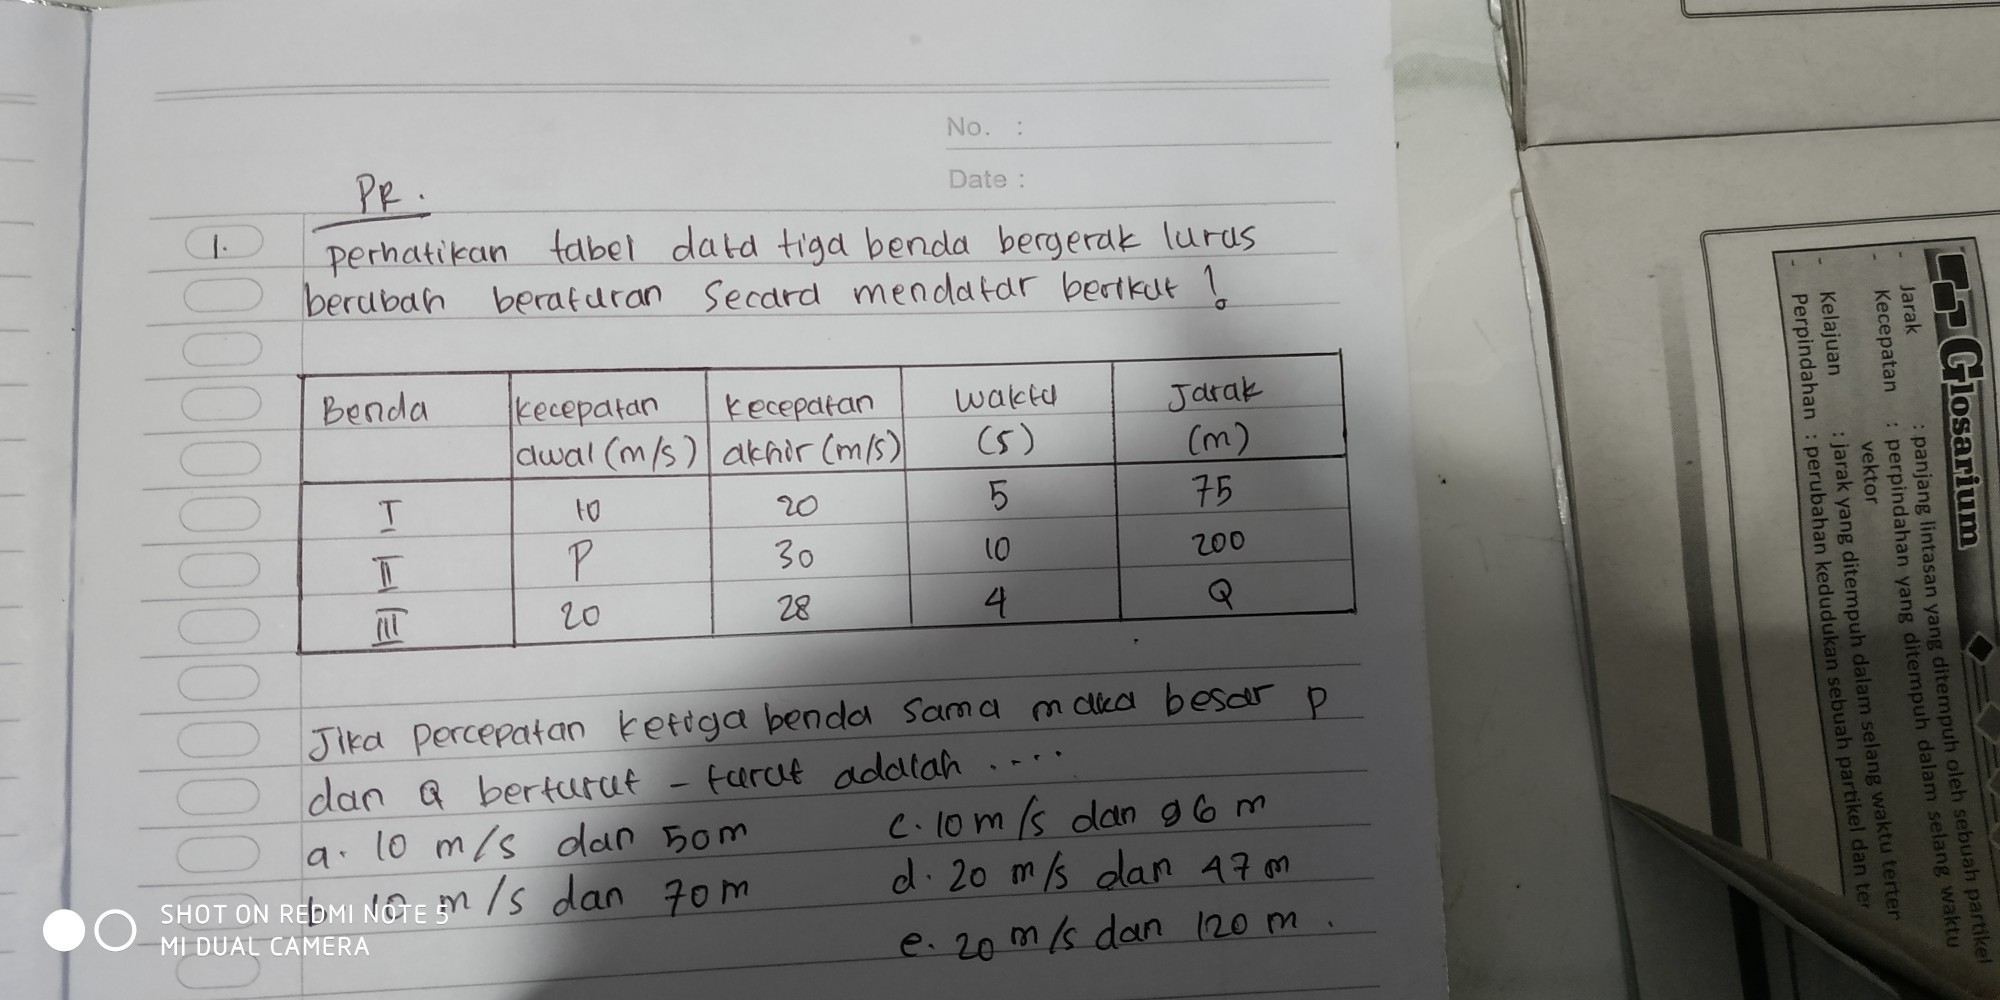 No. :
Date :
PR.
1. perhatikan tabel data tiga benda bergerak lurus
berubah beraturan secara mendatar berikut !
Benda kecepatan awal (m/s) kecepatan akhir (m/s) waktu (s) Jarak (m)
I 10 20 5 75
II P 30 10 200
III 20 28 4 Q
Jika percepatan ketiga benda sama maka besar p
dan Q berturut - turut adalah ....
a. 10 m/s dan 50m
b. 10 m/s dan 70m
c. 10 m/s dan 96 m
d. 20 m/s dan 47 m
e. 20 m/s dan 120 m.
SHOT ON REDMI NOTE 5
MI DUAL CAMERA
Glosarium
- Jarak : panjang lintasan yang ditempuh oleh sebuah partikel
- Kecepatan : perpindahan yang ditempuh dalam selang waktu
vektor
- Kelajuan : jarak yang ditempuh dalam selang waktu terter
- Perpindahan : perubahan kedudukan sebuah partikel dan ter